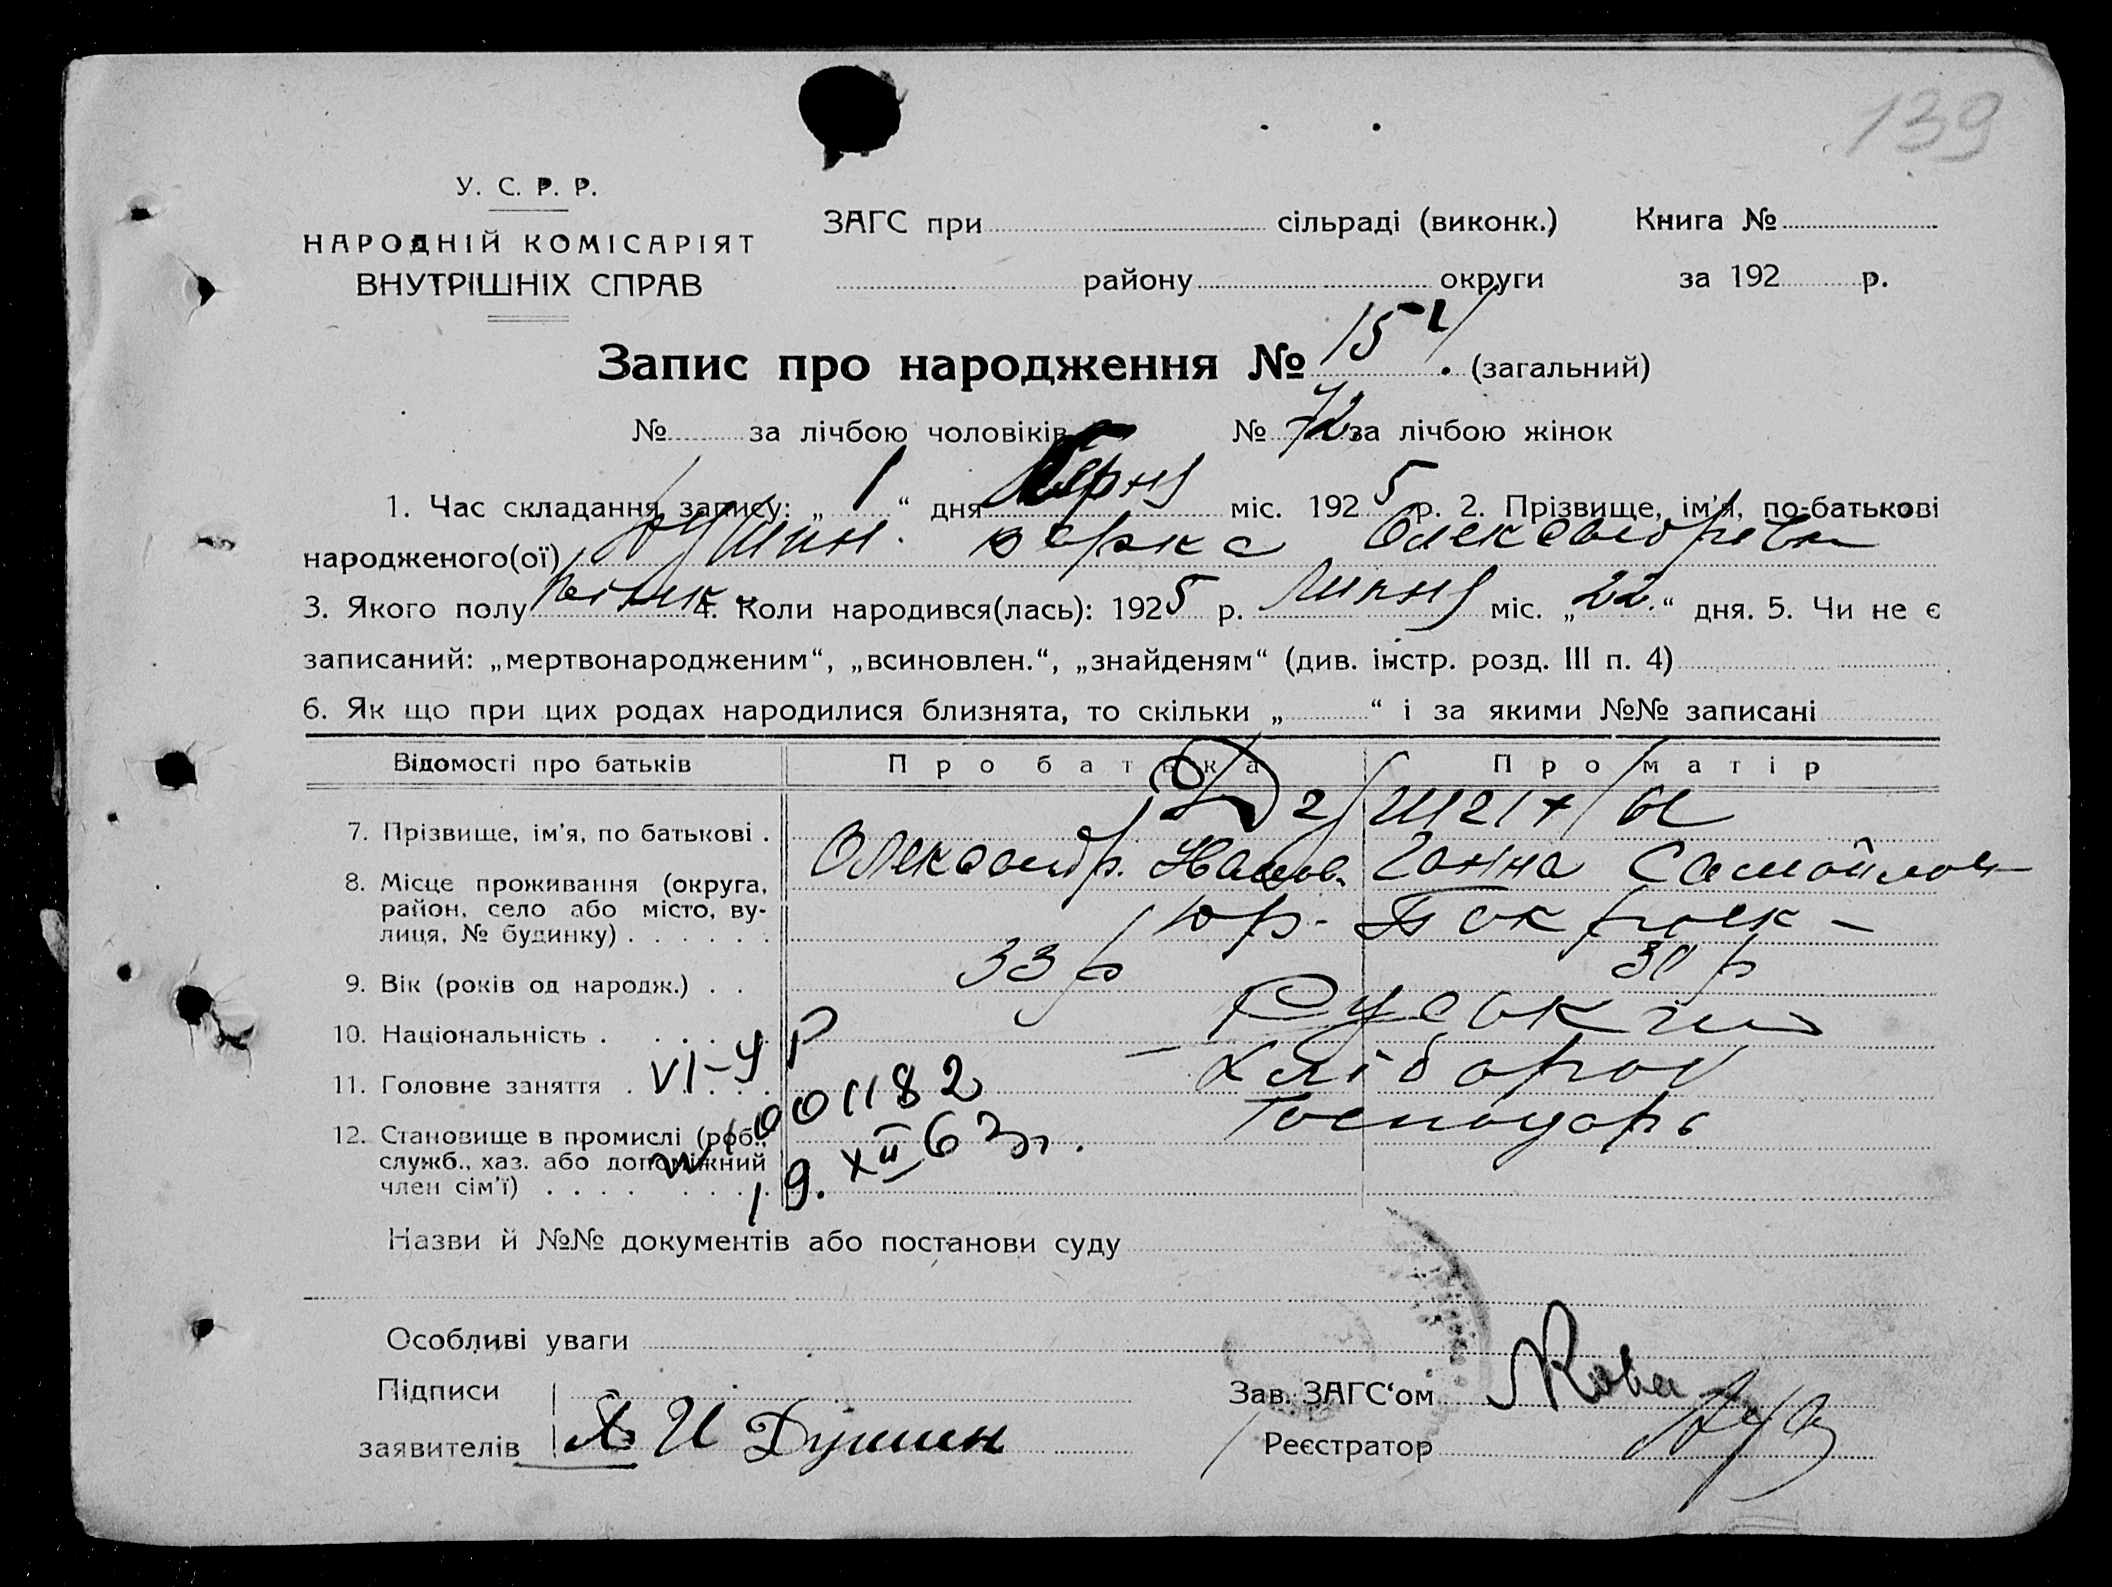 139
У. С. Р. Р.
НАРОДНІЙ КОМІСАРІЯТ
ВНУТРІШНІХ СПРАВ
ЗАГС при сільраді (виконк.) Книга №
району округи за 192 р.
Запис про народження № 151 (загальний)
№ за лічбою чоловіків № 72 за лічбою жінок
1. Час складання запису: „ 1 “ дня міс. 192 5 р. 2. Прізвище, ім'я, по-батькові
народженого(ої) Олександрівна
3. Якого полу жіноч. 4. Коли народився(лась): 192 5 р. Липня міс. „ 22 “ дня. 5. Чи не є
записаний: „мертвонародженим“, „всиновлен.“, „знайденям“ (див. інстр. розд. III п. 4)
6. Як що при цих родах народилися близнята, то скільки „ “ і за якими №№ записані
Відомості про батьків Про батька Про матір
7. Прізвище, ім'я, по батькові .
Олександр. Іванов. Ганна Самойлов
8. Місце проживання (округа,
район, село або місто, ву-
лиця, № будинку) . . . . . .
9. Вік (років од народж.) . . 33 р 30 р
10. Національність .
11. Головне заняття . Хлібороб
VI-УР
001182
12. Становище в промислі (роб.,
служб., хаз. або допоміжний
член сім'ї) . . . . Господарь
19. XII 63 г.
Назви й №№ документів або постанови суду
Особливі уваги
Підписи
заявителів А И Душин
Зав. ЗАГС‘ом
Реєстратор